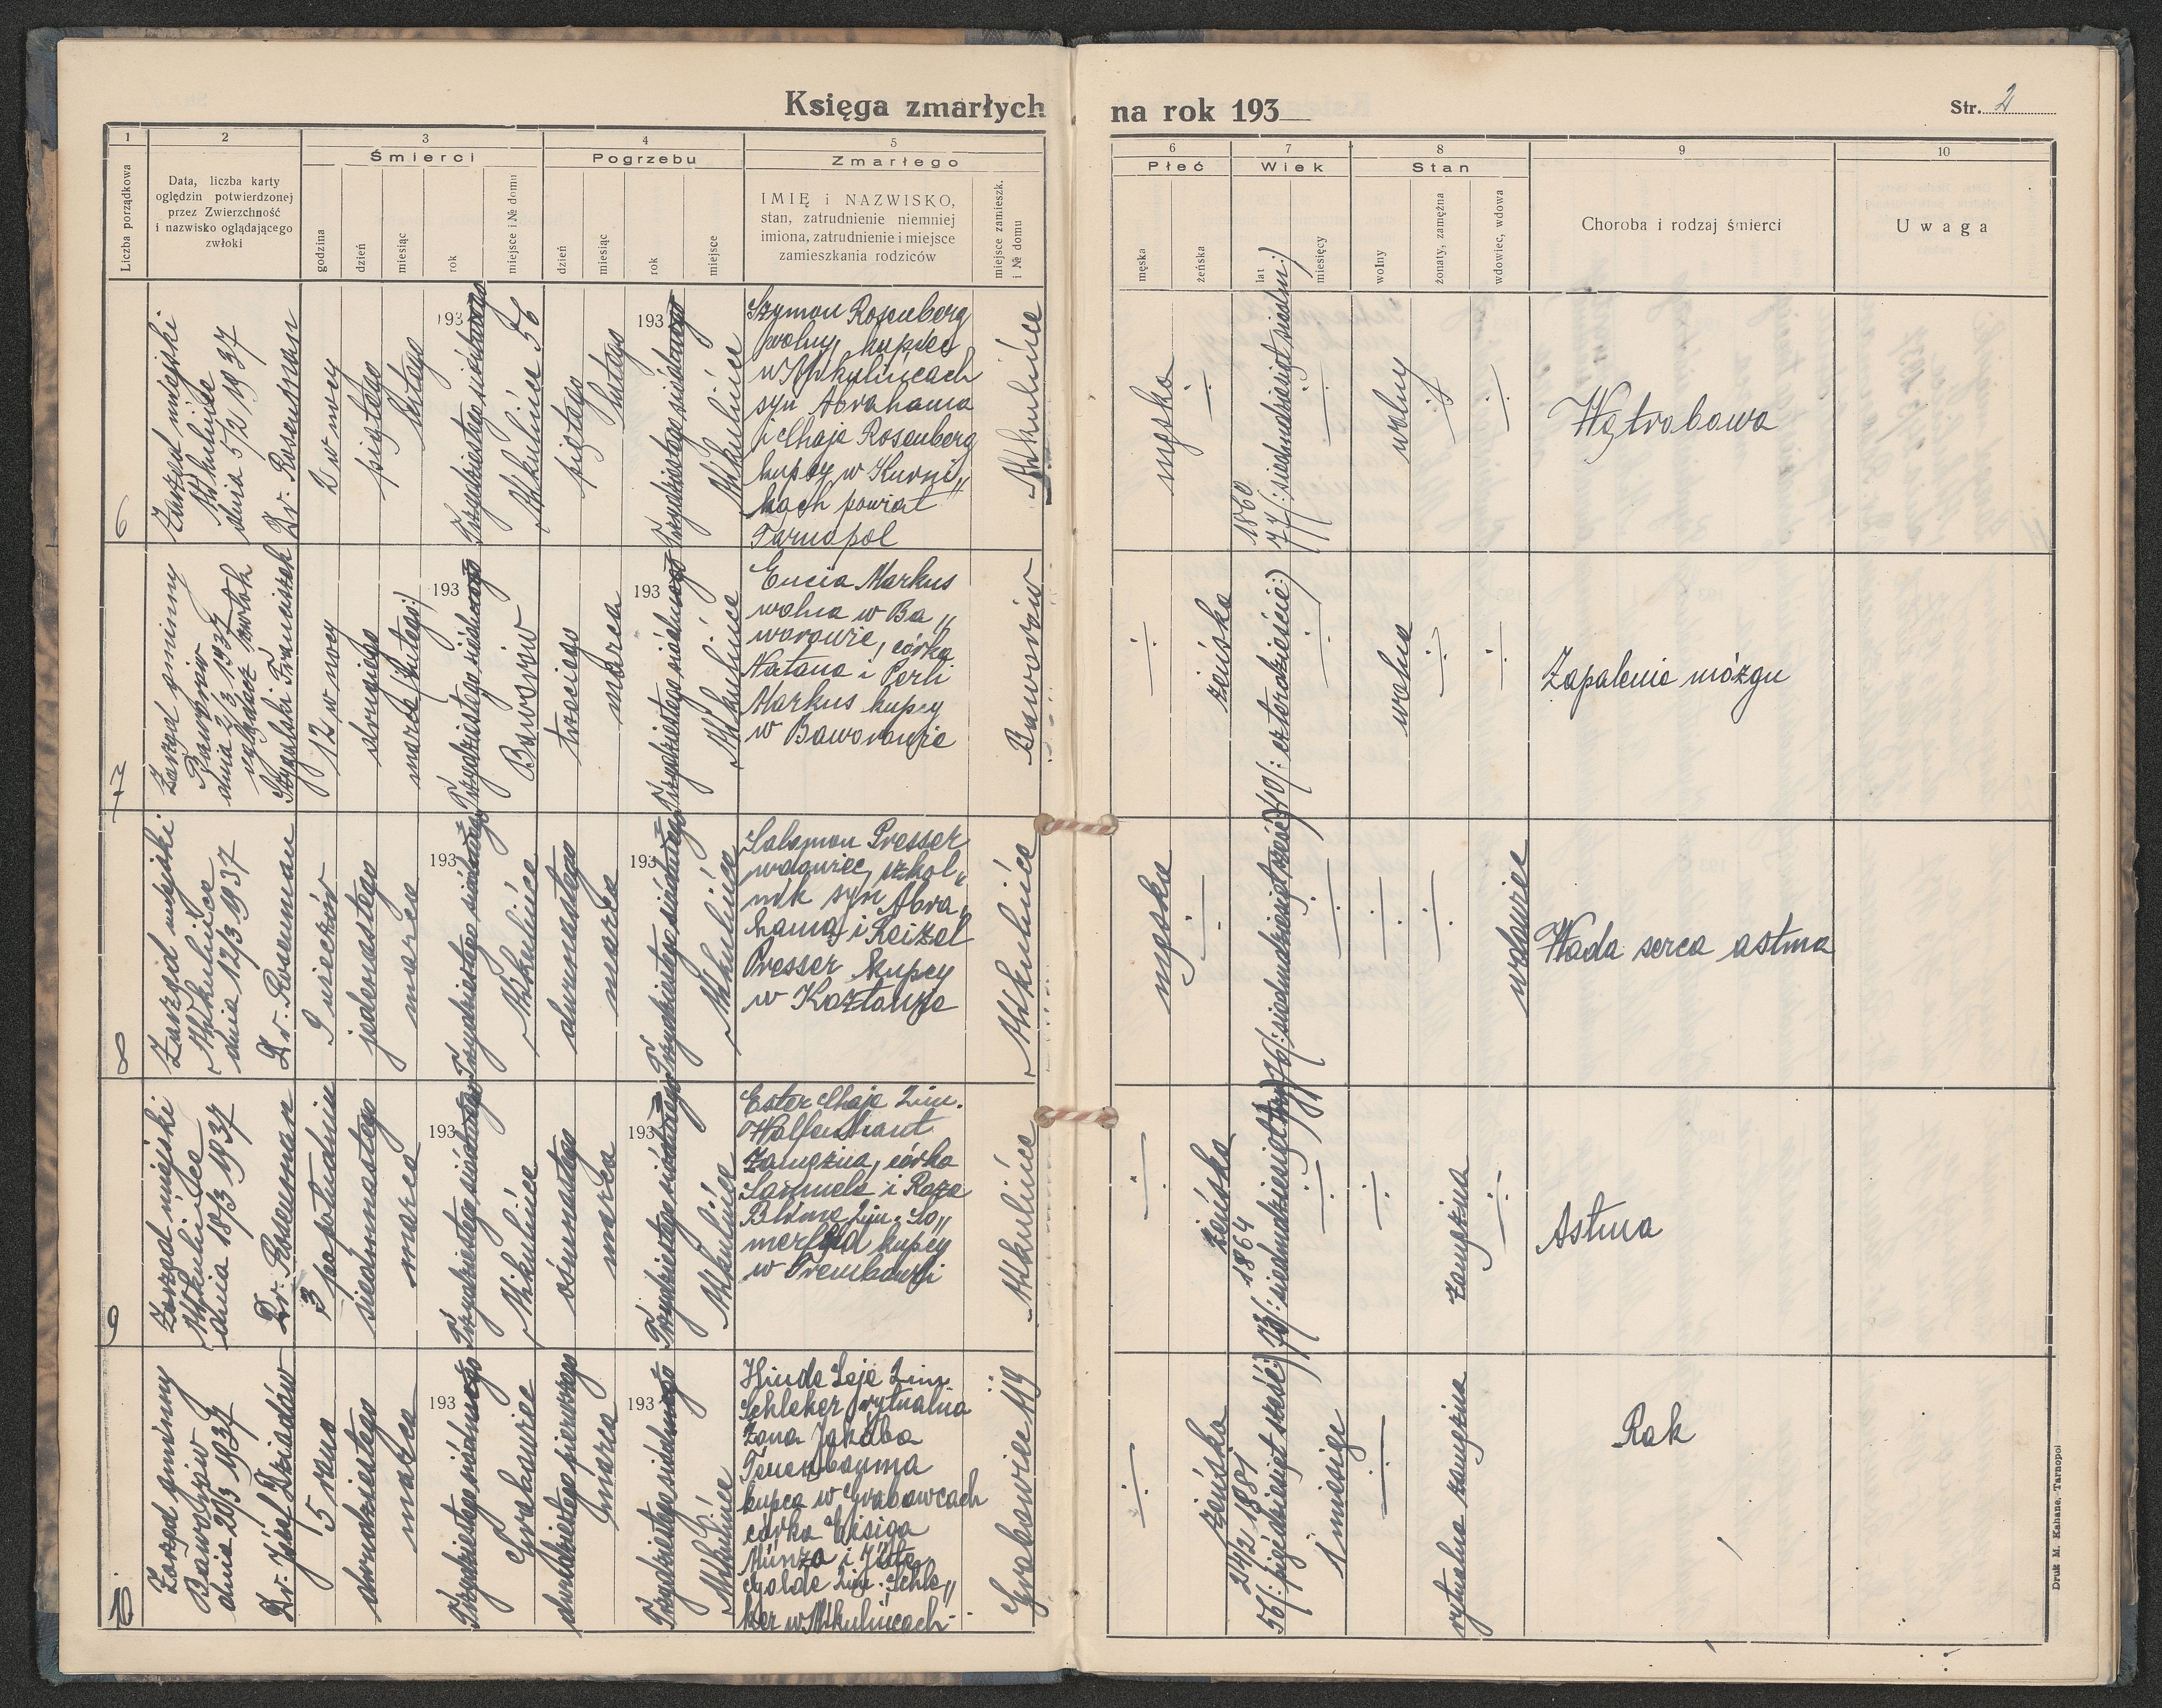 Księga zmarłych na rok 193
Str. 2
1
2
3
4
5
6
7
8
9
10
Liczba porządkowa
Data, liczba karty
oględzin potwierdzonej
przez Zwierzchność
i nazwisko oglądającego
zwłoki
Śmierci
godzina
dzień
miesiąc
rok
miejsce i № domu
Pogrzebu
dzień
miesiąc
rok
miejsce
Zmarłego
IMIĘ i NAZWISKO,
stan, zatrudnienie niemniej
imiona, zatrudnienie i miejsce
zamieszkania rodziców
miejsce zamieszk.
i № domu
Płeć
męska
żeńska
Wiek
lat
miesięcy
Stan
wolny
żonaty, zamężna
wdowiec, wdowa
Choroba i rodzaj śmierci
Uwaga
6
Zarząd miejski
Mikulińce
dnia 5/2 1937
Dr. Rosenman
2 w nocy
piątego
lutego
193
Trzydziestego siódmego
Mikulińce 56
piątego
lutego
193
Trzydziestego siódmego
Mikulińce
Szymon Rosenberg
wolny, kupiec
w Mikulińcach
syn Abrahama
i Chaje Rosenberg
kupcy w Kurni„
kach powiat
Tarnopol
Mikulińce
męska
1860
77 /: siedmdziesiąt siedm :/
wolny
Wątrobowa
7
Zarząd gminny
Baworów
dnia 2/3 1937
oglądacz zwłok
Franciszek
12 w nocy
drugiego
marca (lutego)
193
Trzydziestego siódmego
Baworów
trzeciego
marca
193
Trzydziestego siódmego
Mikulińce
Encia Markus
wolna w Ba„
worowie, córka
Natana i Perli
Markus kupcy
w Baworowie
Baworów
żeńska
40 /: czterdzieście :/
wolna
Zapalenie mózgu
8
Zarząd miejski
Mikulińce
dnia 12/3 1937
Dr. Rosenman
9 wieczór
jedenastego
marca
193
Trzydziestego siódmego
Mikulińce
dwunastego
marca
193
Trzydziestego siódmego
Mikulińce
Salomon Presser
wdowiec, szkol„
nik syn Abra„
hama i Reizel
Presser kupcy
w Kozłowie
Mikulińce
męska
76 /: siedmdziesiąt sześć :/
wdowiec
Wada serca astma
9
Zarząd miejski
Mikulińce
dnia 18/3 1937
Dr. Rosenman
3 popołudniu
siedmnastego
marca
193
Trzydziestego siódmego
Mikulińce
ośmnastego
marca
193
Trzydziestego siódmego
Mikulińce
Ester Chaje 2im.
zamężna, córka
Samuela i Roza
Blima 2im. So„
merfeld kupcy
w Trembowli
Mikulińce
żeńska
1864
73 /: siedmdziesiąt trzy :/
zamężna
Astma
10
Zarząd gminny
Baworów
dnia 20/3 1937
Dr. Józef Dziadów
5 rano
dwudziestego
marca
193
Trzydziestego siódmego
Grabowiec
dwudziestego pierwszego
marca
193
Trzydziestego siódmego
Mikulińce
Hinde Leje 2im
Schleker rytualna
żona Jakóba
Tenenbauma
kupca w Grabowcach
córka Eisiga
Münza i Jütte
Golde 2im. Schle„
ker w Mikulińcach
Grabowiec 119
żeńska
24/2 1881
56 /: pięćdziesiąt sześć :/
1 miesiąc
rytualna zamężna
Rak
Druk M. Kahane, Tarnopol